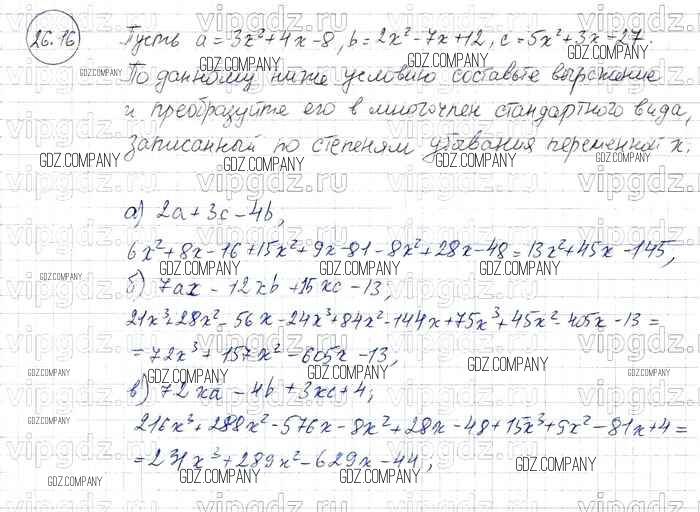 26.16 Пусть a = 3x² + 4x - 8, b = 2x² - 7x + 12, c = 5x² + 3x - 27.
По данному ниже условию составьте выражение
и преобразуйте его в многочлен стандартного вида,
записанный по степеням убывания переменной x:
а) 2a + 3c - 4b;
6x² + 8x - 16 + 15x² + 9x - 81 - 8x² + 28x - 48 = 13x² + 45x - 145;
б) 7ax - 12xb + 15xc - 13;
21x³ + 28x² - 56x - 24x³ + 84x² - 144x + 75x³ + 45x² - 405x - 13 =
= 72x³ + 157x² - 605x - 13;
в) 72xa - 4b + 3xc + 4;
216x³ + 288x² - 576x - 8x² + 28x - 48 + 15x³ + 9x² - 81x + 4 =
= 231x³ + 289x² - 629x - 44;
GDZ.COMPANY
vipgdz.ru